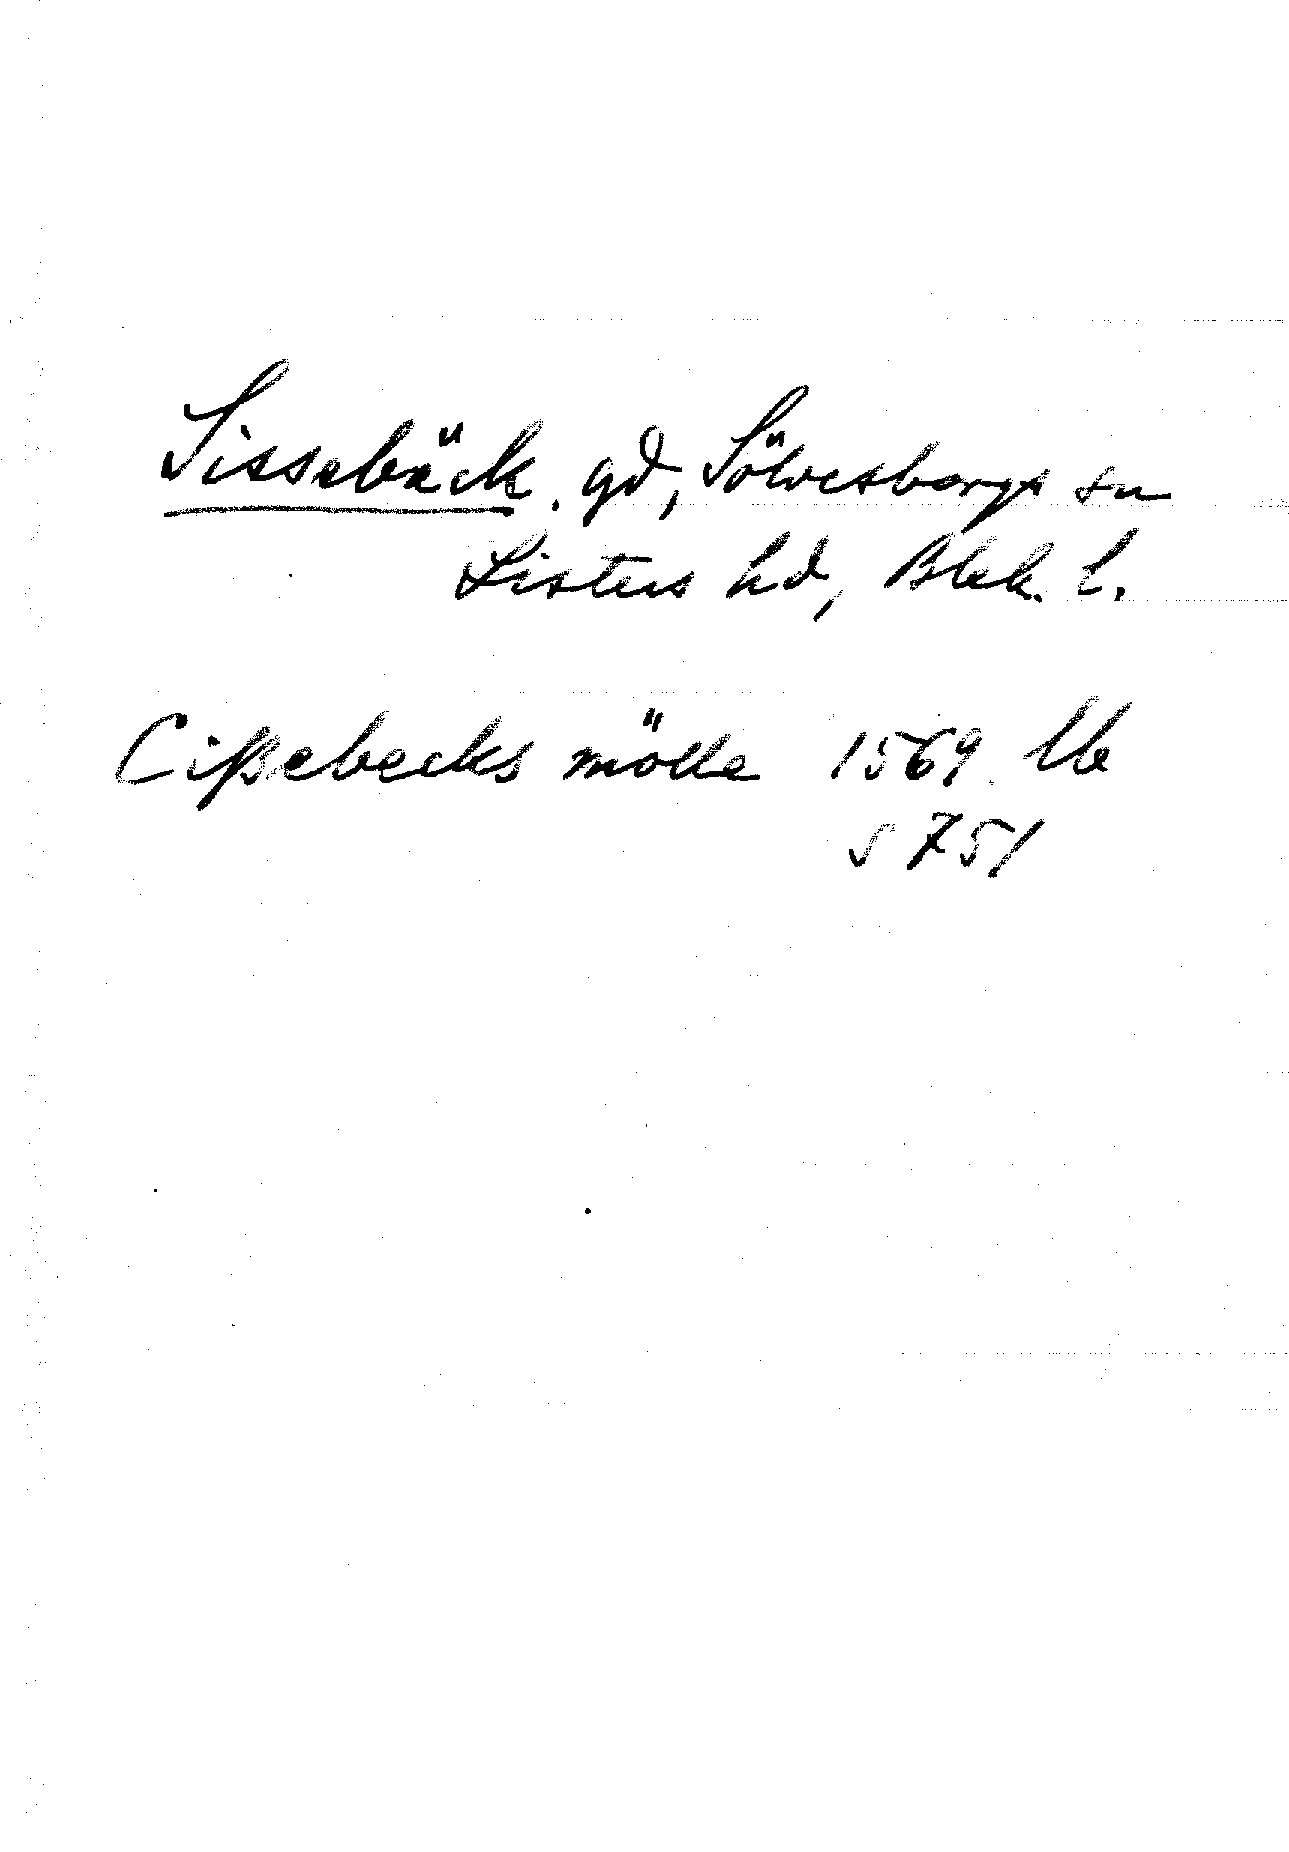 Sissebäck. gd, Sölvesborgs sn
Listers hd, Blek. l.
Cißebecks mölle 1569. Ub
s 751